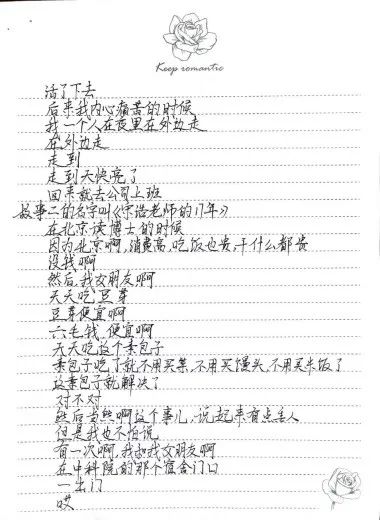 Keep romantic
活了下去
后来我内心痛苦的时候
我一个人在夜里在外边走
在外边走
走到
走到天快亮了
回来就去公司上班
故事二的名字叫《宋浩老师的17年》
在北京读博士的时候
因为北京啊,消费高,吃饭也贵,干什么都贵
没钱啊
然后,我女朋友啊
天天吃豆芽
豆芽便宜啊
六毛钱,便宜啊
天天吃这个素包子
素包子吃了就不用买菜,不用买馒头,不用买米饭了
这素包子就解决了
对不对
然后当然啊这个事儿,说起来有点丢人
但是我也不怕说
有一次啊,我和我女朋友啊
在中科院的那个宿舍门口
一出门
哎